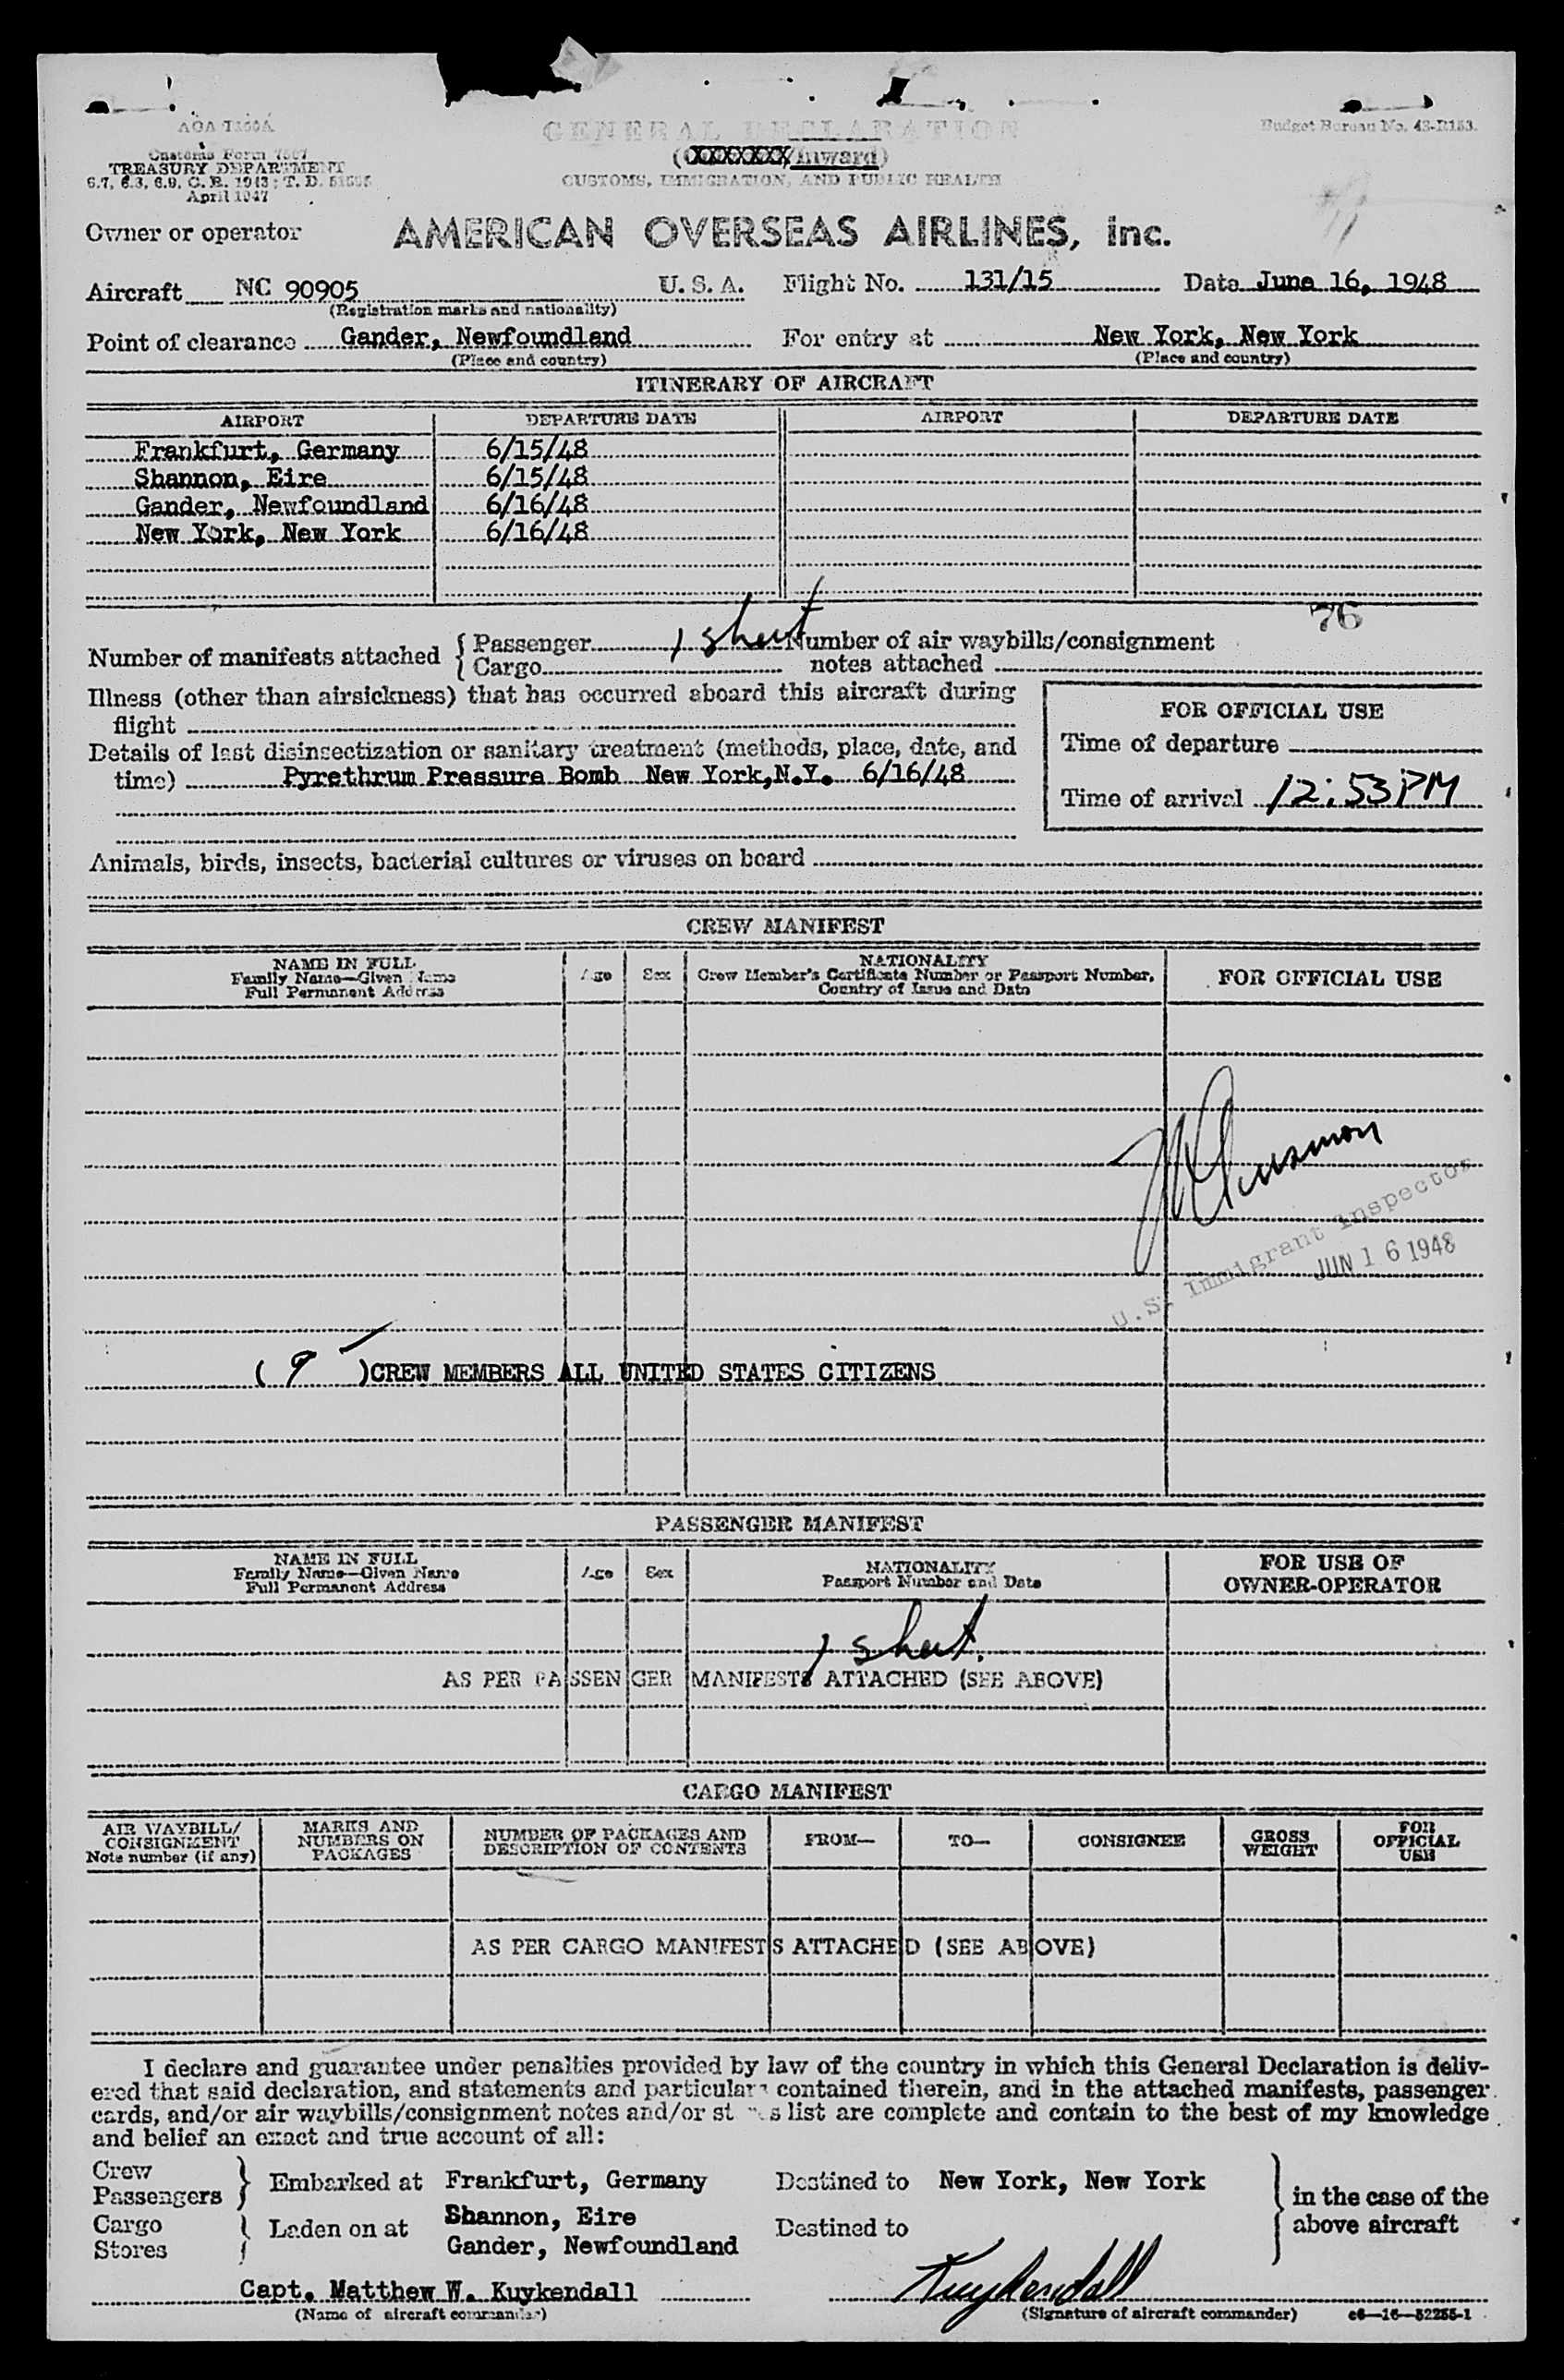 AOA T100A
Customs Form 7507
TREASURY DEPARTMENT
6.7, 6.8, 6.9, C. R. 1943; T. D. 51595
April 1947
GENERAL DECLARATION
(XXXXXXX/Inward)
CUSTOMS, IMMIGRATION, AND PUBLIC HEALTH
Budget Bureau No. 43-R153.
Owner or operator AMERICAN OVERSEAS AIRLINES, inc.
Aircraft NC 90905 U. S. A. Flight No. 131/15 Date June 16, 1948
(Registration marks and nationality)
Point of clearance Gander, Newfoundland For entry at New York, New York
(Place and country) (Place and country)
ITINERARY OF AIRCRAFT
AIRPORT DEPARTURE DATE AIRPORT DEPARTURE DATE
Frankfurt, Germany 6/15/48
Shannon, Eire 6/15/48
Gander, Newfoundland 6/16/48
New York, New York 6/16/48
76
Number of manifests attached { Passenger 1 sheet Number of air waybills/consignment
{ Cargo notes attached
Illness (other than airsickness) that has occurred aboard this aircraft during
flight
Details of last disinsectization or sanitary treatment (methods, place, date, and
time) Pyrethrum Pressure Bomb New York,N.Y. 6/16/48
FOR OFFICIAL USE
Time of departure
Time of arrival 12:53 PM
Animals, birds, insects, bacterial cultures or viruses on board
CREW MANIFEST
NAME IN FULL
Family Name—Given Name
Full Permanent Address
Age Sex
NATIONALITY
Crew Member's Certificate Number or Passport Number,
Country of Issue and Date
FOR OFFICIAL USE
U.S. Immigrant Inspector
JUN 16 1948
( 9 )CREW MEMBERS ALL UNITED STATES CITIZENS
PASSENGER MANIFEST
NAME IN FULL
Family Name—Given Name
Full Permanent Address
Age Sex
NATIONALITY
Passport Number and Date
FOR USE OF
OWNER-OPERATOR
1 sheet.
AS PER PASSENGER MANIFESTS ATTACHED (SEE ABOVE)
CARGO MANIFEST
AIR WAYBILL/
CONSIGNMENT
Note number (if any)
MARKS AND
NUMBERS ON
PACKAGES
NUMBER OF PACKAGES AND
DESCRIPTION OF CONTENTS
FROM—
TO—
CONSIGNEE
GROSS
WEIGHT
FOR
OFFICIAL
USE
AS PER CARGO MANIFESTS ATTACHED (SEE ABOVE)
I declare and guarantee under penalties provided by law of the country in which this General Declaration is deliv-
ered that said declaration, and statements and particulars contained therein, and in the attached manifests, passenger
cards, and/or air waybills/consignment notes and/or stores list are complete and contain to the best of my knowledge
and belief an exact and true account of all:
Crew
Passengers } Embarked at Frankfurt, Germany Destined to New York, New York
Cargo
Stores } Laden on at Shannon, Eire Destined to
Gander, Newfoundland
} in the case of the
above aircraft
Capt. Matthew W. Kuykendall Kuykendall
(Name of aircraft commander) (Signature of aircraft commander) c6—16—52255-1